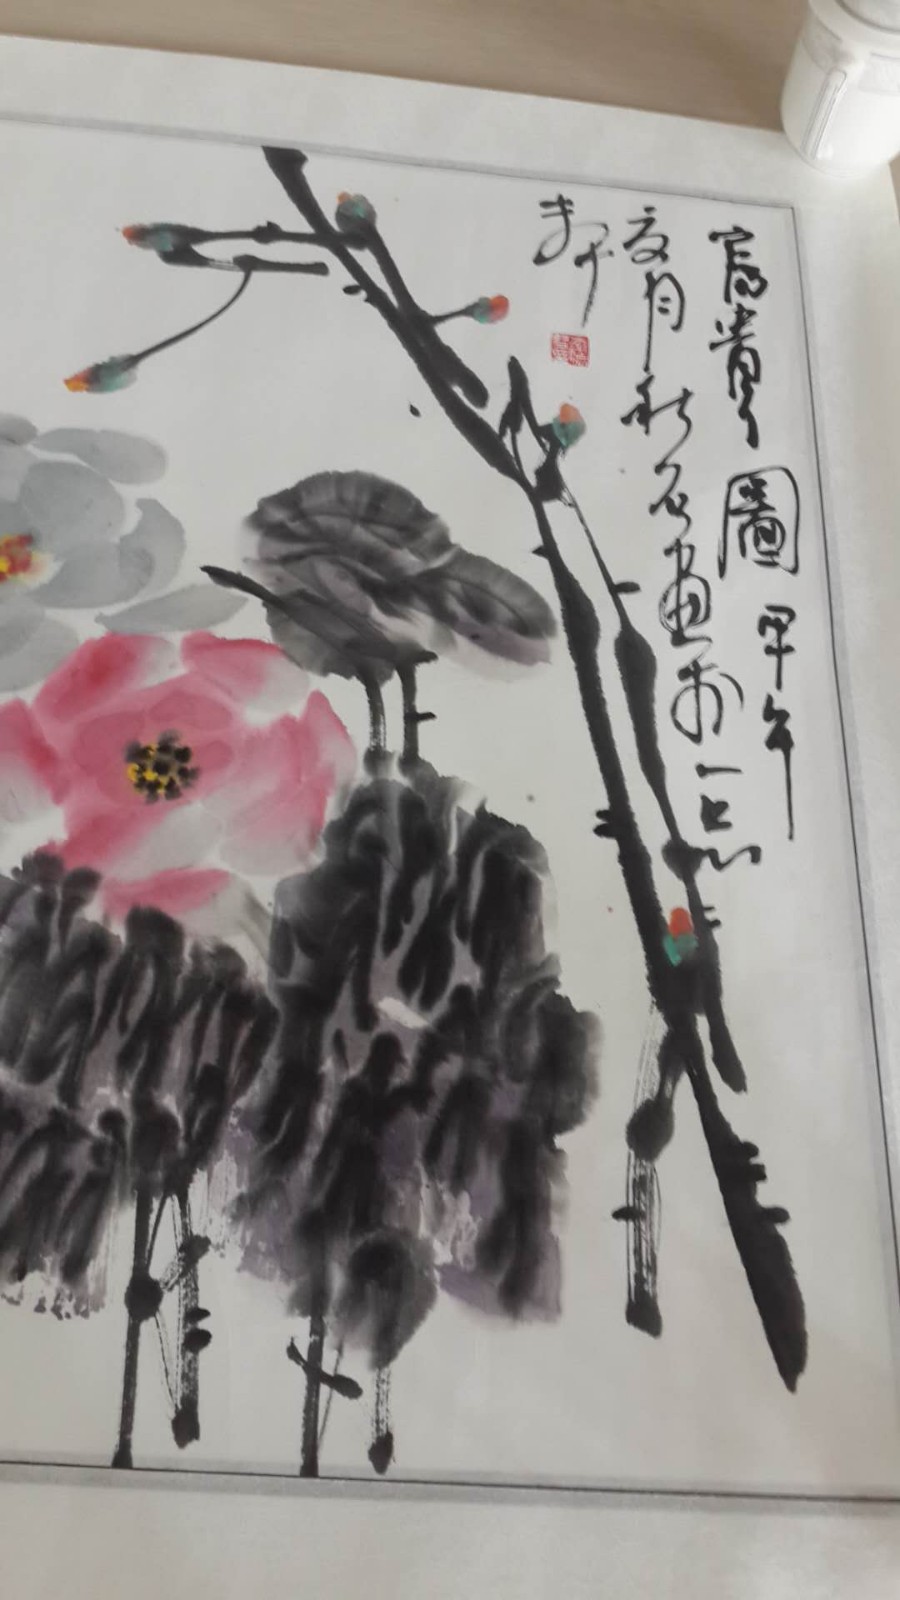 富貴圖 甲午
夏月秋石畫於一忘
軒